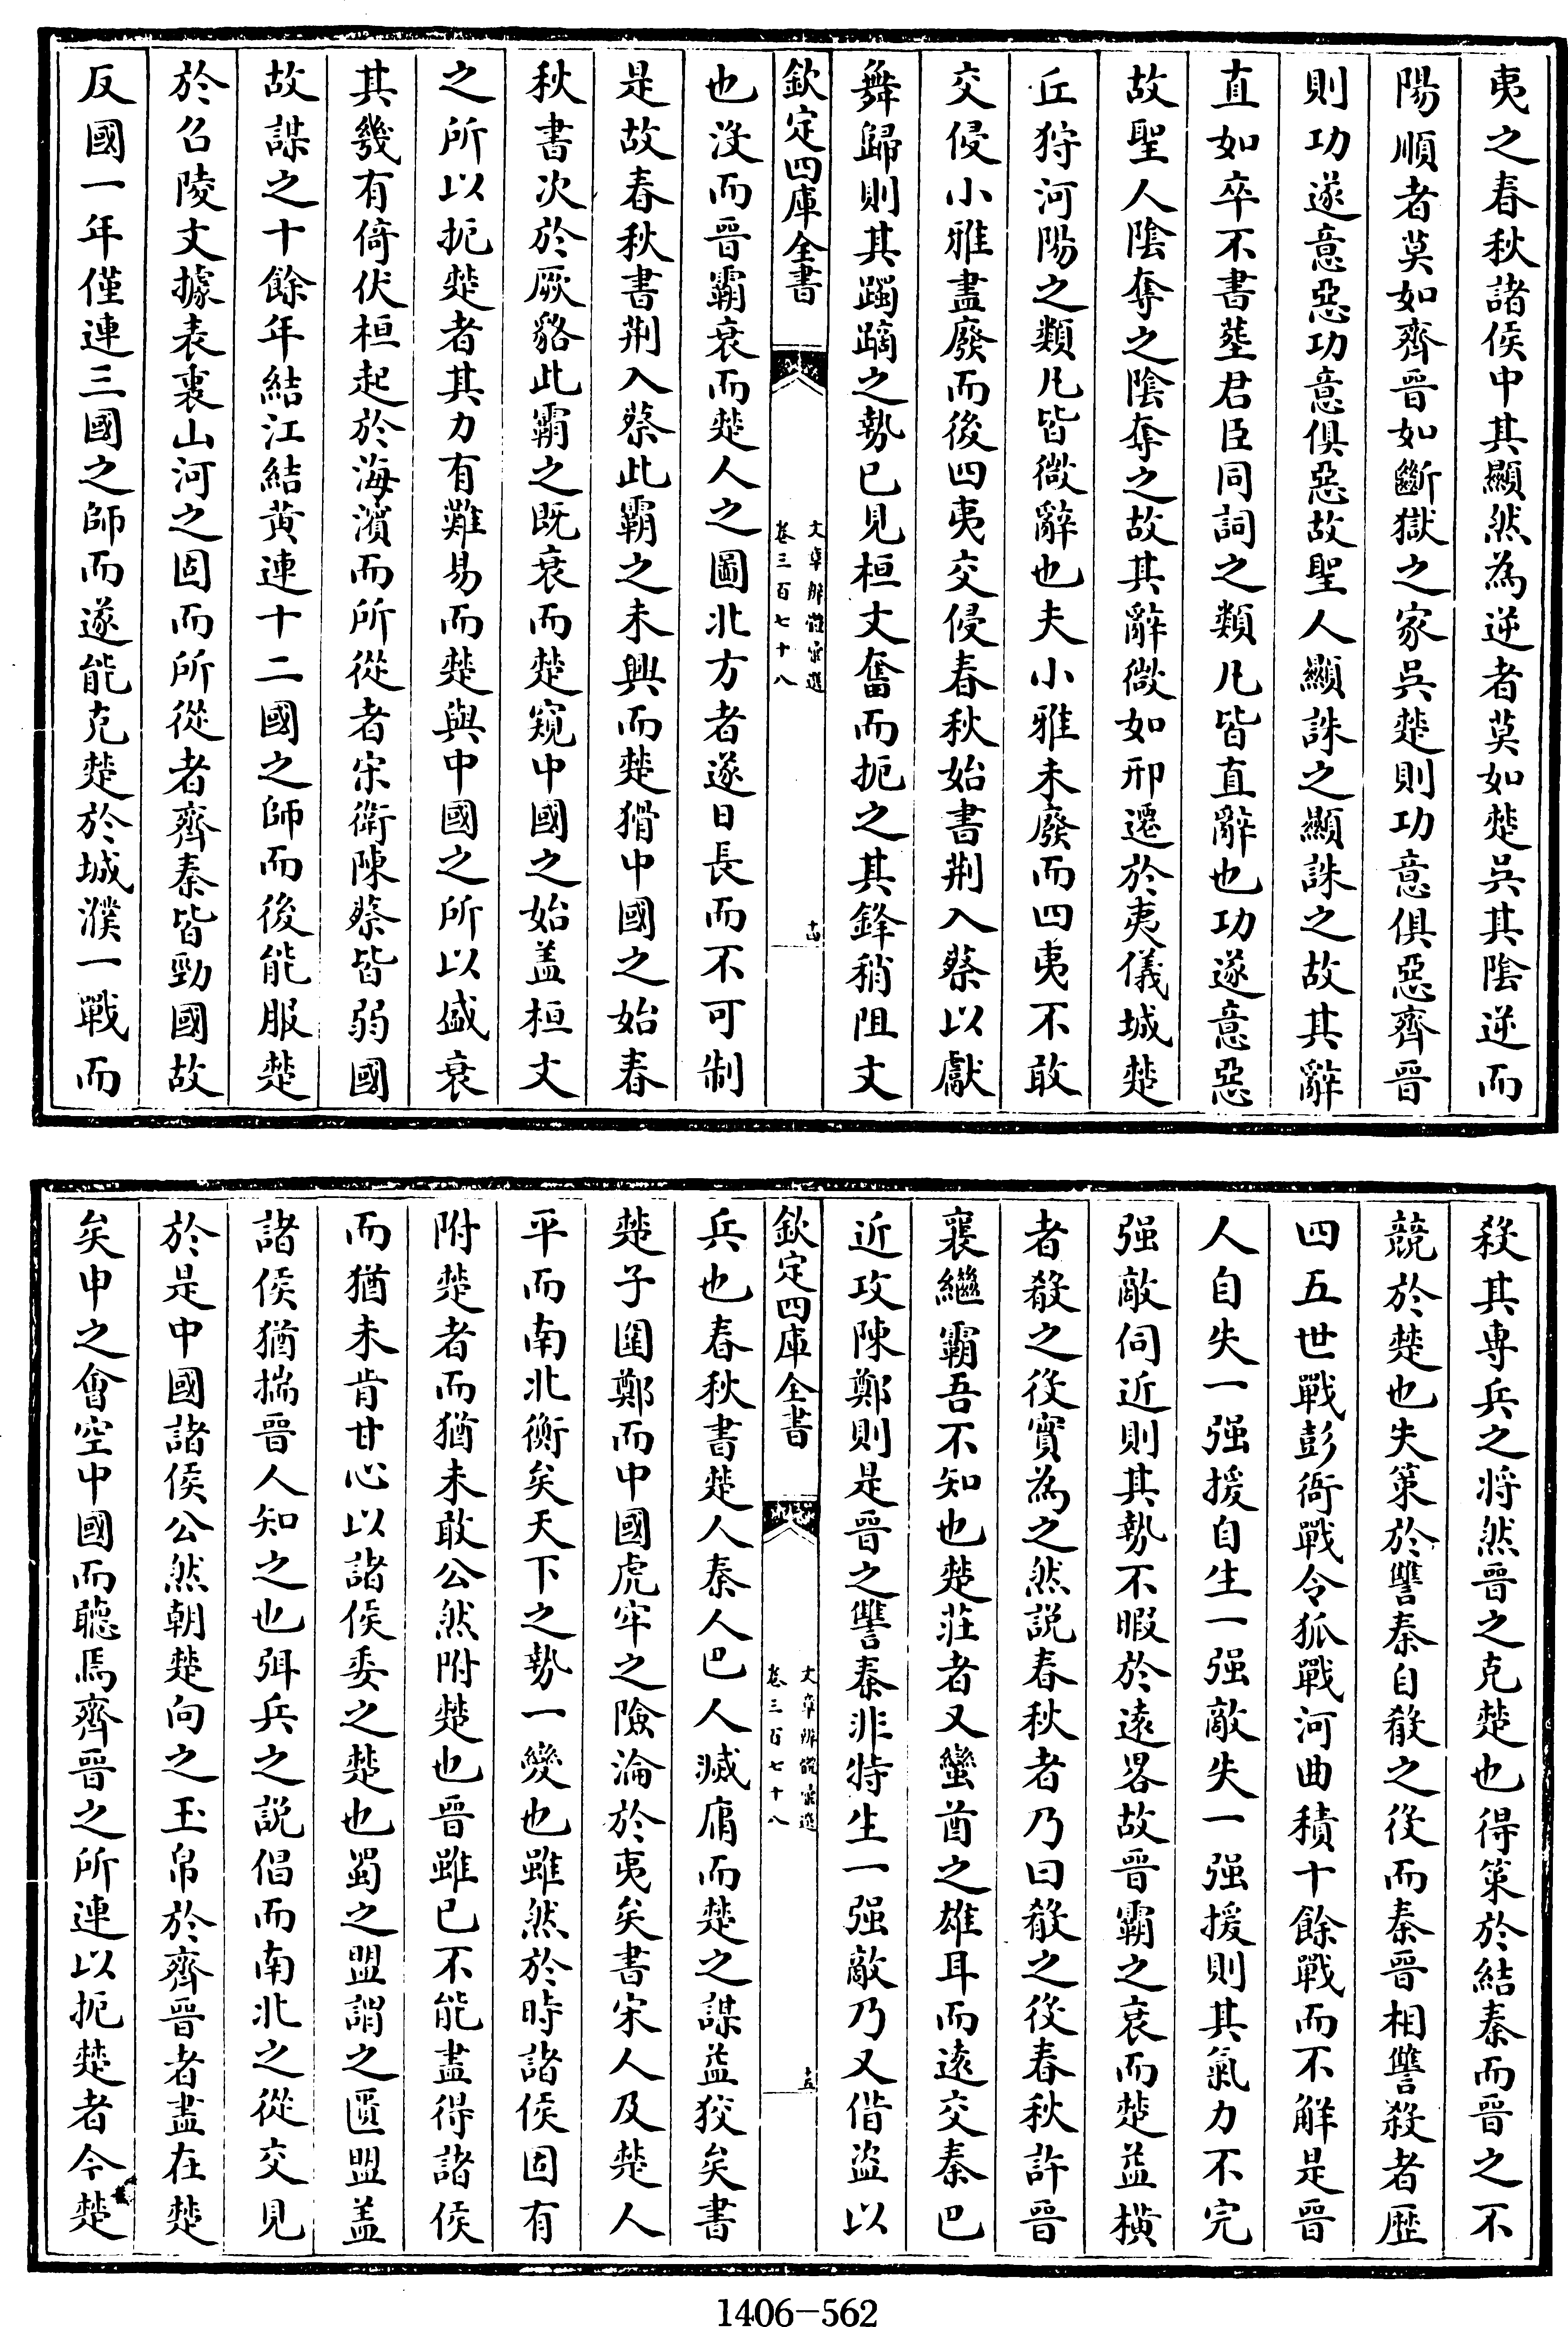 夷之春秋諸侯中其顯然為逆者莫如楚吳其陰逆而
陽順者莫如齊晉如斷獄之家吳楚則功意俱惡齊晉
則功遂意惡功意俱惡故聖人顯誅之顯誅之故其辭
直如卒不書塟君臣同詞之類凡皆直辭也功遂意惡
故聖人陰奪之陰奪之故其辭微如邢遷於夷儀城楚
丘狩河陽之類凡皆微辭也夫小雅未廢而四夷不敢
交侵小雅盡廢而後四夷交侵春秋始書荆入蔡以獻
舞歸則其躅蹢之勢已見桓文奮而扼之其鋒稍阻文
欽定四庫全書
文章辨體彙選
卷三百七十八
十四
也沒而晉霸衰而楚人之圖北方者遂日長而不可制
是故春秋書荆入蔡此霸之未興而楚猾中國之始春
秋書次於厥貉此霸之既衰而楚窺中國之始盖桓文
之所以扼楚者其力有難易而楚與中國之所以盛衰
其幾有倚伏桓起於海濱而所從者宋衛陳蔡皆弱國
故謀之十餘年結江結黄連十二國之師而後能服楚
於召陵文據表裏山河之固而所從者齊秦皆勁國故
反國一年僅連三國之師而遂能克楚於城濮一戰而
殺其專兵之将然晉之克楚也得策於結秦而晉之不
競於楚也失策於讐秦自殽之役而秦晉相讐殺者歷
四五世戰彭衙戰令狐戰河曲積十餘戰而不解是晉
人自失一强援自生一强敵失一强援則其氣力不完
强敵伺近則其勢不暇於遠畧故晉霸之衰而楚益横
者殽之役實為之然説春秋者乃曰殽之役春秋許晉
襄繼霸吾不知也楚莊者又蠻酋之雄耳而遠交秦巴
近攻陳鄭則是晉之讐秦非特生一强敵乃又借盗以
欽定四庫全書
文章辨體彙選
卷三百七十八
十五
兵也春秋書楚人秦人巴人滅庸而楚之謀益狡矣書
楚子圍鄭而中國虎牢之險淪於夷矣書宋人及楚人
平而南北衡矣天下之勢一變也雖然於時諸侯固有
附楚者而猶未敢公然附楚也晉雖已不能盡得諸侯
而猶未肯甘心以諸侯委之楚也蜀之盟謂之匱盟盖
諸侯猶揣晉人知之也弭兵之説倡而南北之從交見
於是中國諸侯公然朝楚向之玉帛於齊晉者盡在楚
矣申之會空中國而聽焉齊晉之所連以扼楚者今楚
1406-562